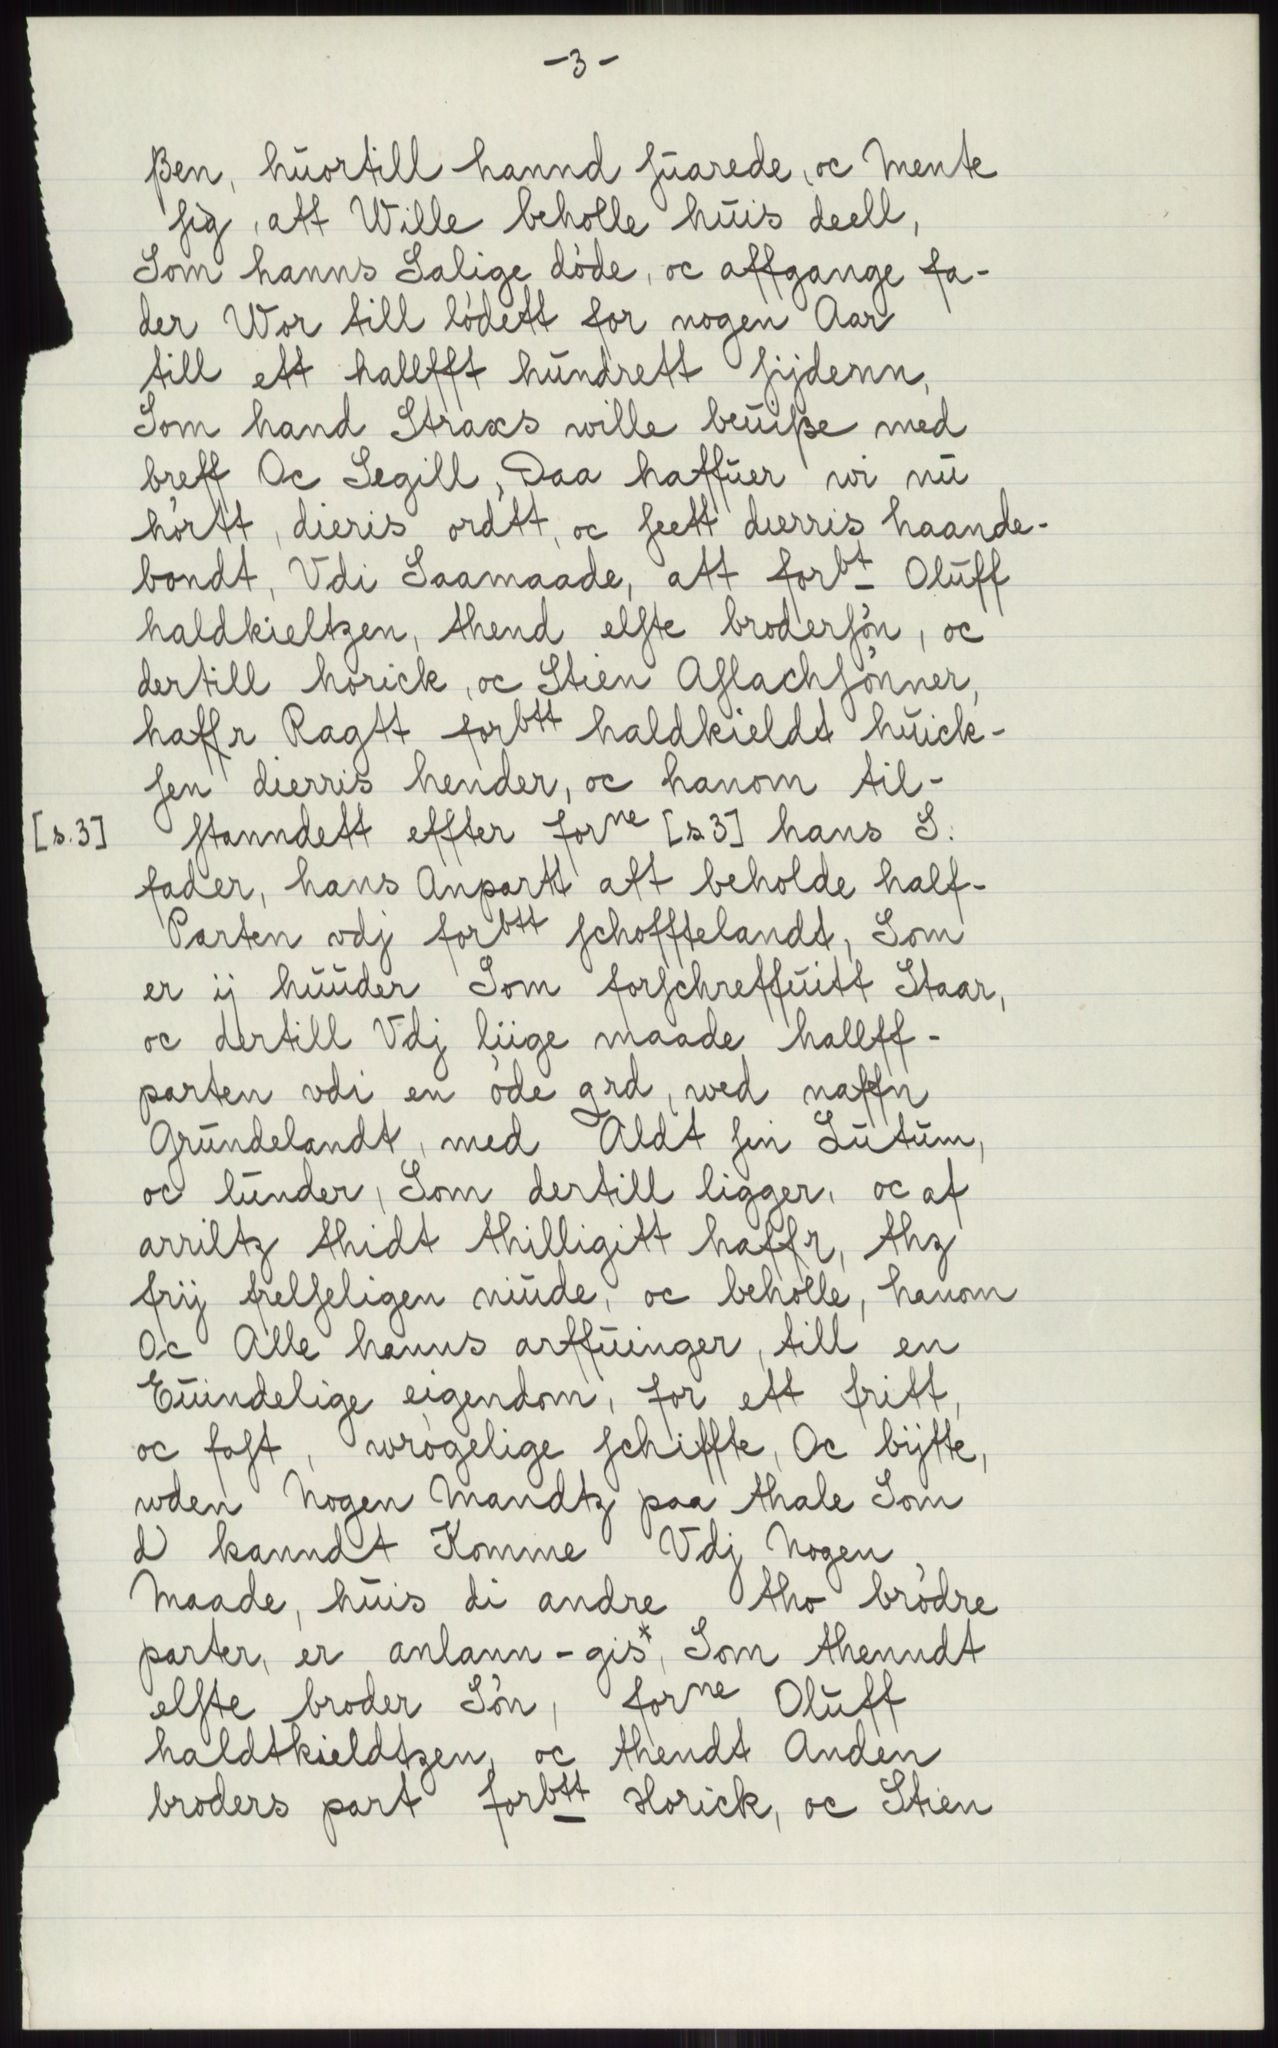 -3-
ßen, huortill hannd suarede, oc Mente
sig, att Wille beholle huis deell,
Som hanns Salige döde, oc affgange fa-
der Wor till lödett for nogen Aar
till ett hallfft hundrett sijdenn,
Som hand Straxs wille beuiße med
breff Oc Segill, Daa haffuer wi nu
hörtt, dieris ordtt, oc seett dierris haande-
bondt, Vdi Saamaade, att forbt Oluff
haldkieltzen, thend elste brodersön, oc
dertill horick, oc Stien Aslachsönner,
haffr Ragtt forbtt haldkieldt huick-
sen dierris hender, oc hanom til-
[s.3] stanndett effter forne [s.3] hans S:
fader, hans Anpartt att beholde half-
Parten vdj forbtt schofftelandt, Som
er ij huuder Som forschreffuitt Staar,
oc dertill Vdj liige maade hallff-
parten vdi en öde grd, wed naffn
Grundelandt, med Aldt sin Lutum,
oc lunder, Som dertill ligger, oc af
arriltz thidt thilligitt haffr, thz
frij frelseligen niude, oc beholle, hanom
Oc Alle hanns arffuinger, till en
Euindelige eigendom, for ett fritt,
oc fast, wrögelige schiffte, Oc bijtte,
wden Nogen Mandtz paa thale Som
d kanndt Komme Vdj Nogen
Maade, huis di andre tho brödre
parter, er anlann-gis*, Som thenndt
elste broder Sön, forne Oluff
haldtkieldtzen, oc thendt Anden
broders part forbtt Horick, oc Stien